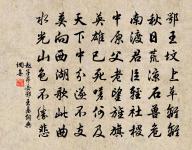 鄂王墳上草離離
秋日荒涼石獸危
南渡君臣輕社稷
中原父老望旌旗
英雄已死嗟何及
天下中分遂不支
莫向西湖歌此曲
水光山色不勝悲